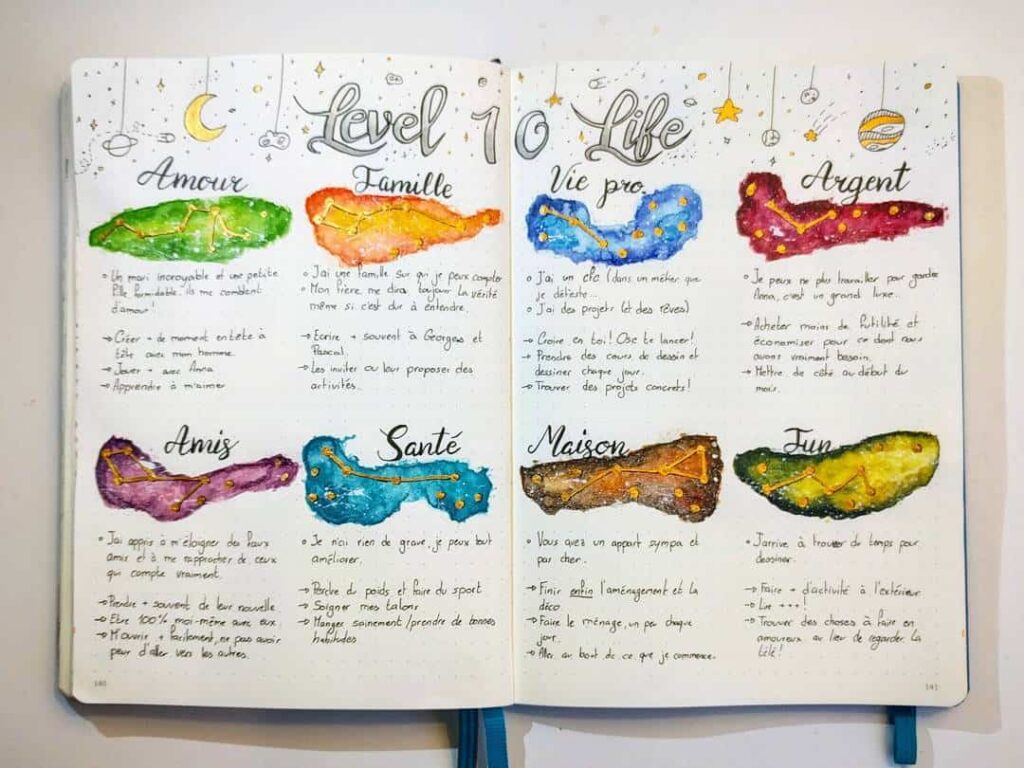 Level 10 Life
Amour
° Un mari incroyable et une petite
fille formidable. ils me comblent
d'amour!
→ Créer + de moment en tête à
tête avec mon homme.
→ Jouer + avec Anna
→ Apprendre à m'aimer
Famille
° J'ai une famille sur qui je peux compter
° Mon frère me dira toujour la vérité
même si c'est dur à entendre.
→ Ecrire + souvent à Georges et
Pascal.
→ Les inviter ou leur proposer des
activités.
Vie pro.
° J'ai un cfc (dans un métier que
je déteste...
° J'ai des projets (et des rêves)
→ Croire en toi! Ose te lancer!
→ Prendre des cours de dessin et
dessiner chaque jour.
→ Trouver des projets concrets!
Argent
° Je peux ne plus travailler pour garder
Anna, c'est un grand luxe..
→ Acheter moins de futilité et
économiser pour ce dont nous
avons vraiment besoin.
→ Mettre de côté au début du
mois.
Amis
° J'ai appris à m'éloigner des faux
amis et à me rapprocher de ceux
qui compte vraiment.
→ Prendre + souvent de leur nouvelle
→ Etre 100% moi-même avec eux.
→ M'ouvrir + facilement, ne pas avoir
peur d'aller vers les autres.
Santé
° Je n'ai rien de grave, je peux tout
améliorer.
→ Perdre du poids et faire du sport
→ Soigner mes talons
→ Manger sainement/prendre de bonnes
habitudes
Maison
° Vous avez un appart sympa et
pas cher.
→ Finir enfin l'aménagement et la
déco.
→ Faire le ménage, un peu chaque
jour.
→ Aller au bout de ce que je commence.
Fun
° J'arrive à trouver du temps pour
dessiner.
→ Faire + d'activité à l'extérieur
→ Lire +++!
→ Trouver des choses à faire en
amoureux au lieu de regarder la
télé!
140
141